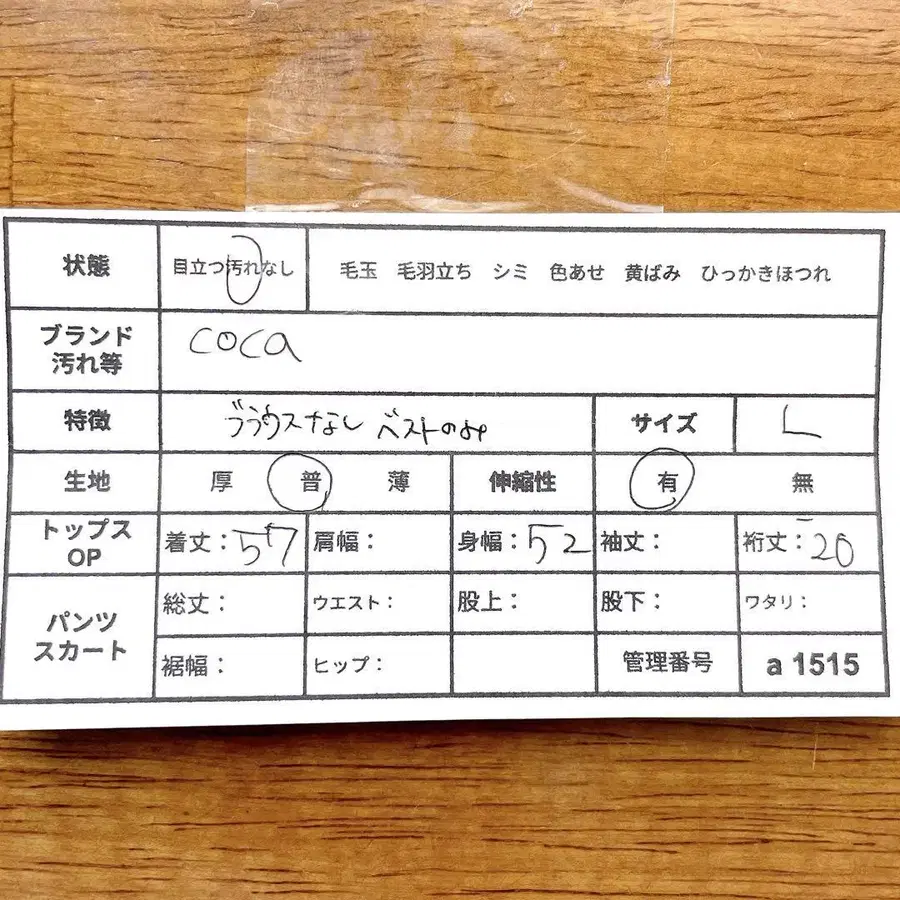 状態 目立つ汚れなし 毛玉 毛羽立ち シミ 色あせ 黄ばみ ひっかきほつれ
ブランド 汚れ等 coca
特徴 ブラウスなし ベストのみ サイズ L
生地 厚 普 薄 伸縮性 有 無
トップス OP 着丈：57 肩幅： 身幅：52 袖丈： 裄丈：20
パンツ スカート 総丈： ウエスト： 股上： 股下： ワタリ：
裾幅： ヒップ： 管理番号 a 1515